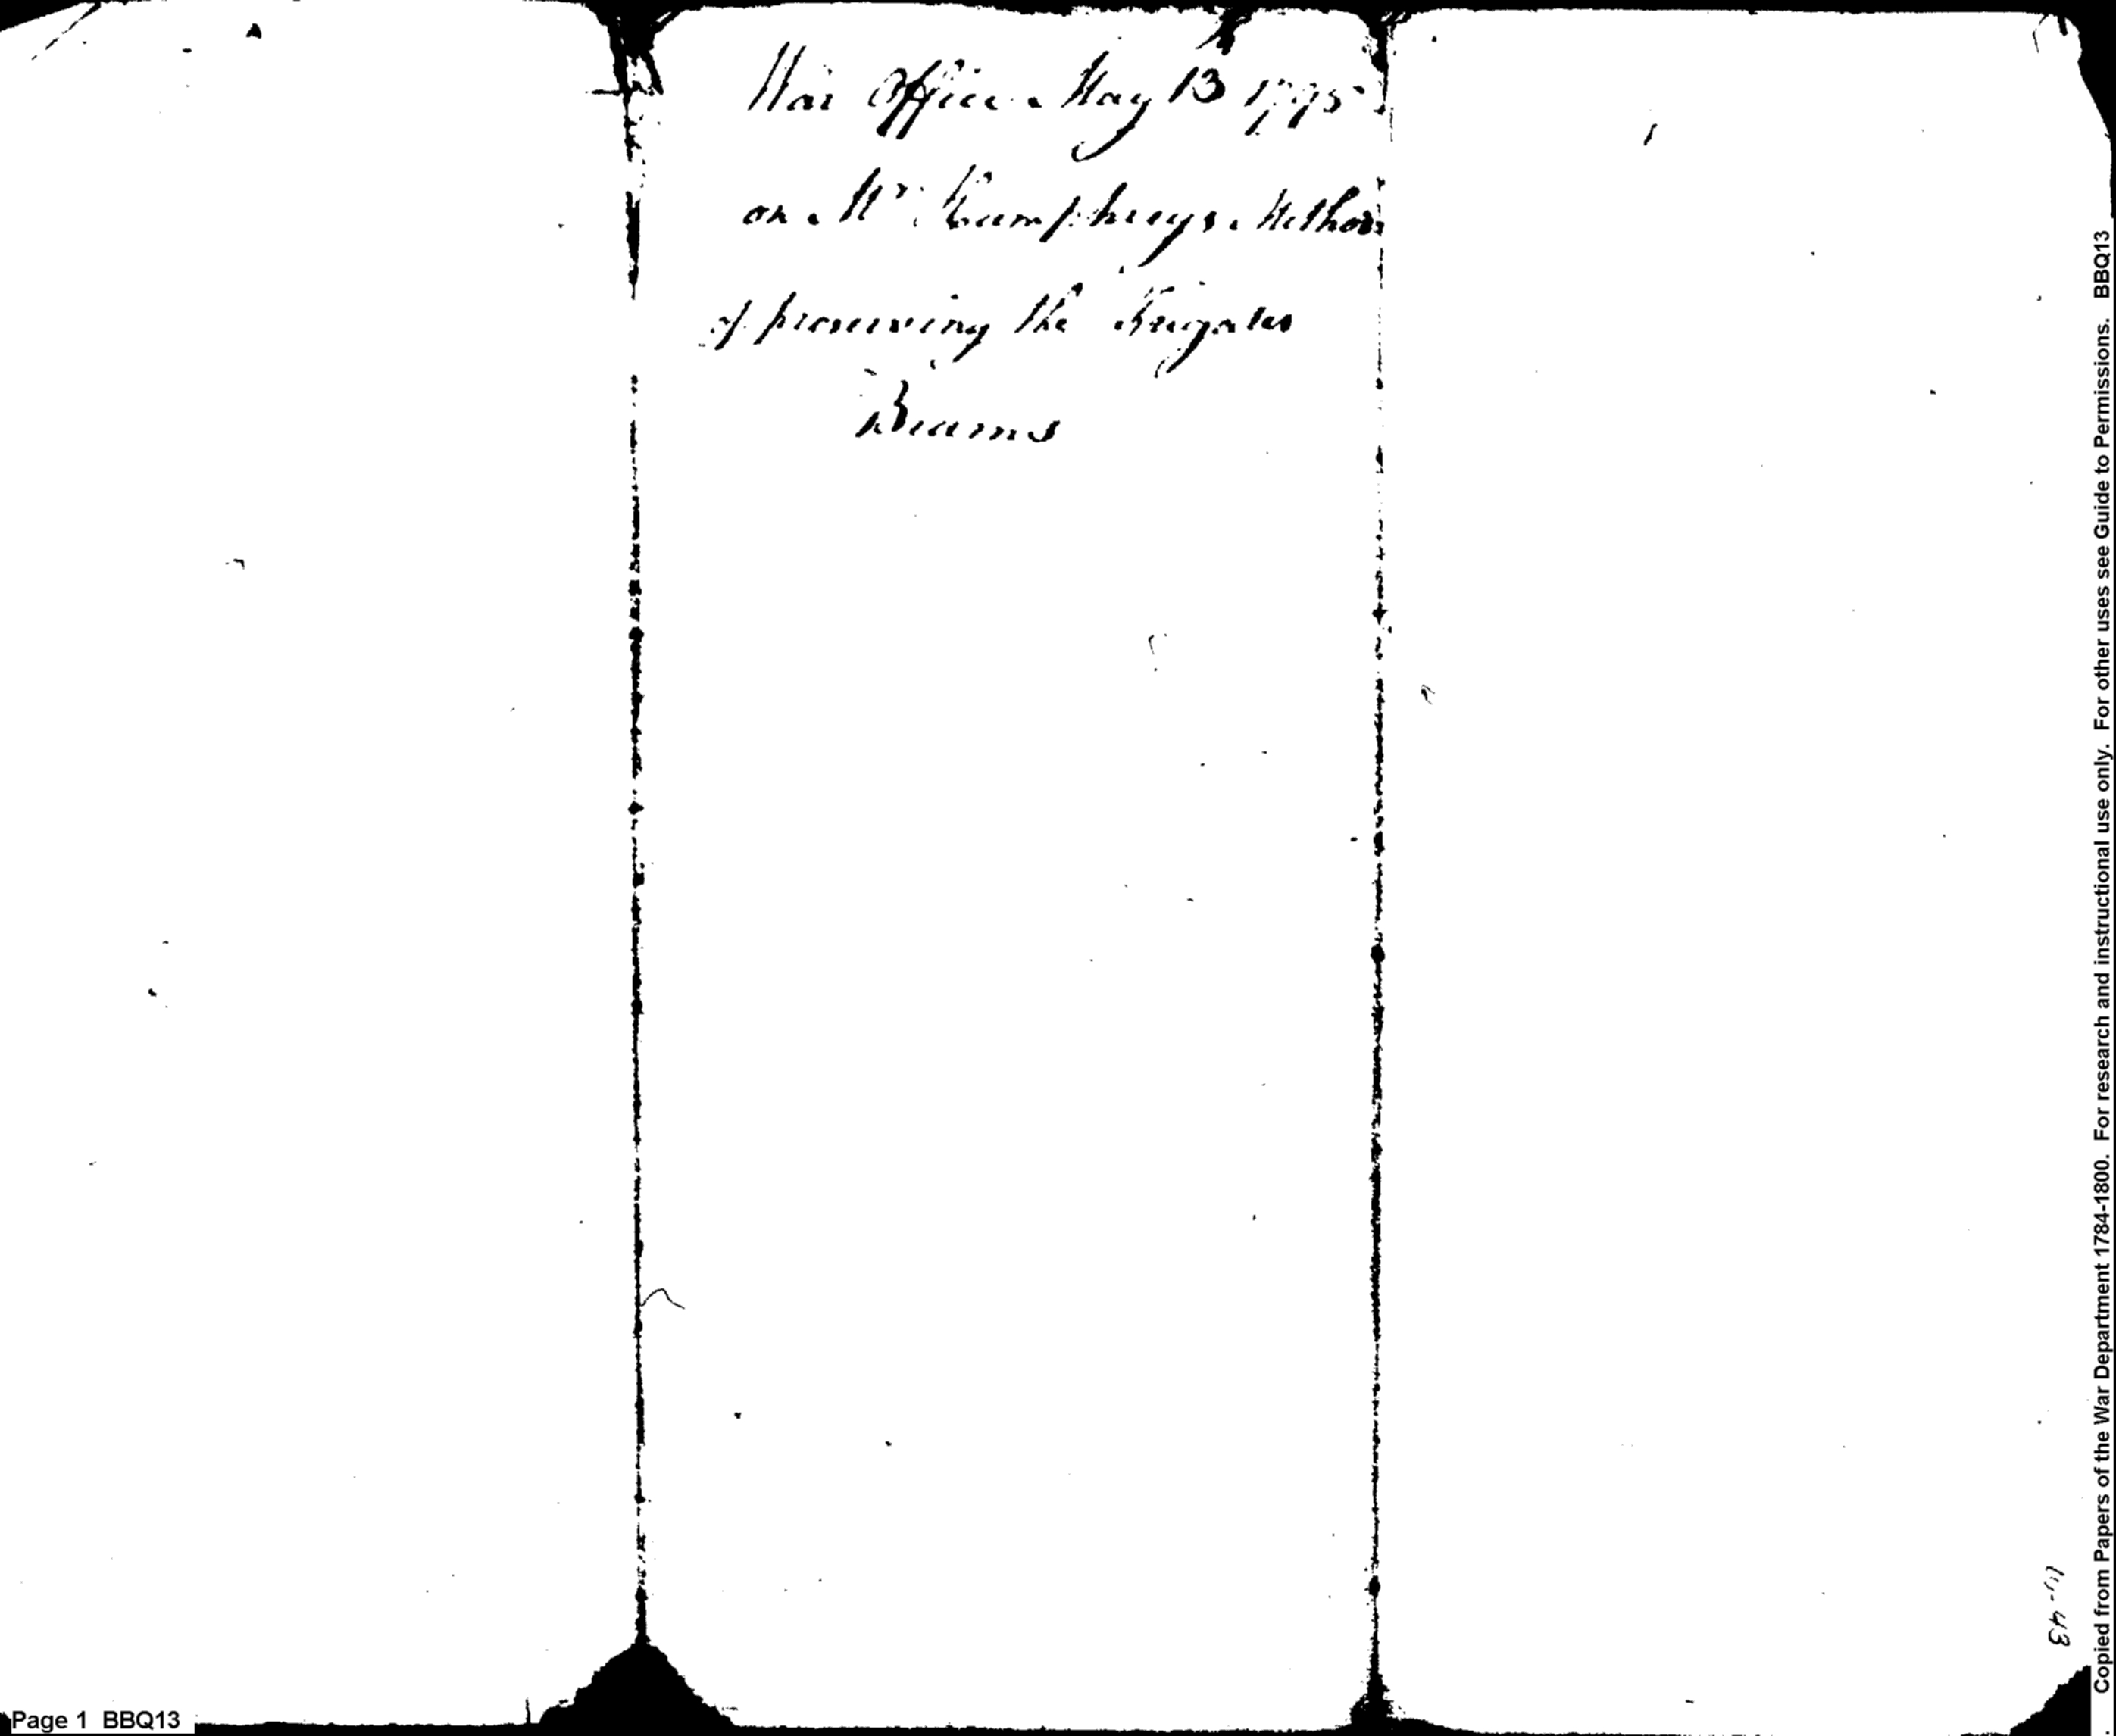 War Office May 13 1795
on Mr Humphreys Method
of preserving the Frigates
Beams
Page 1 BBQ13
Copied from Papers of the War Department 1784-1800. For research and instructional use only. For other uses see Guide to Permissions. BBQ13